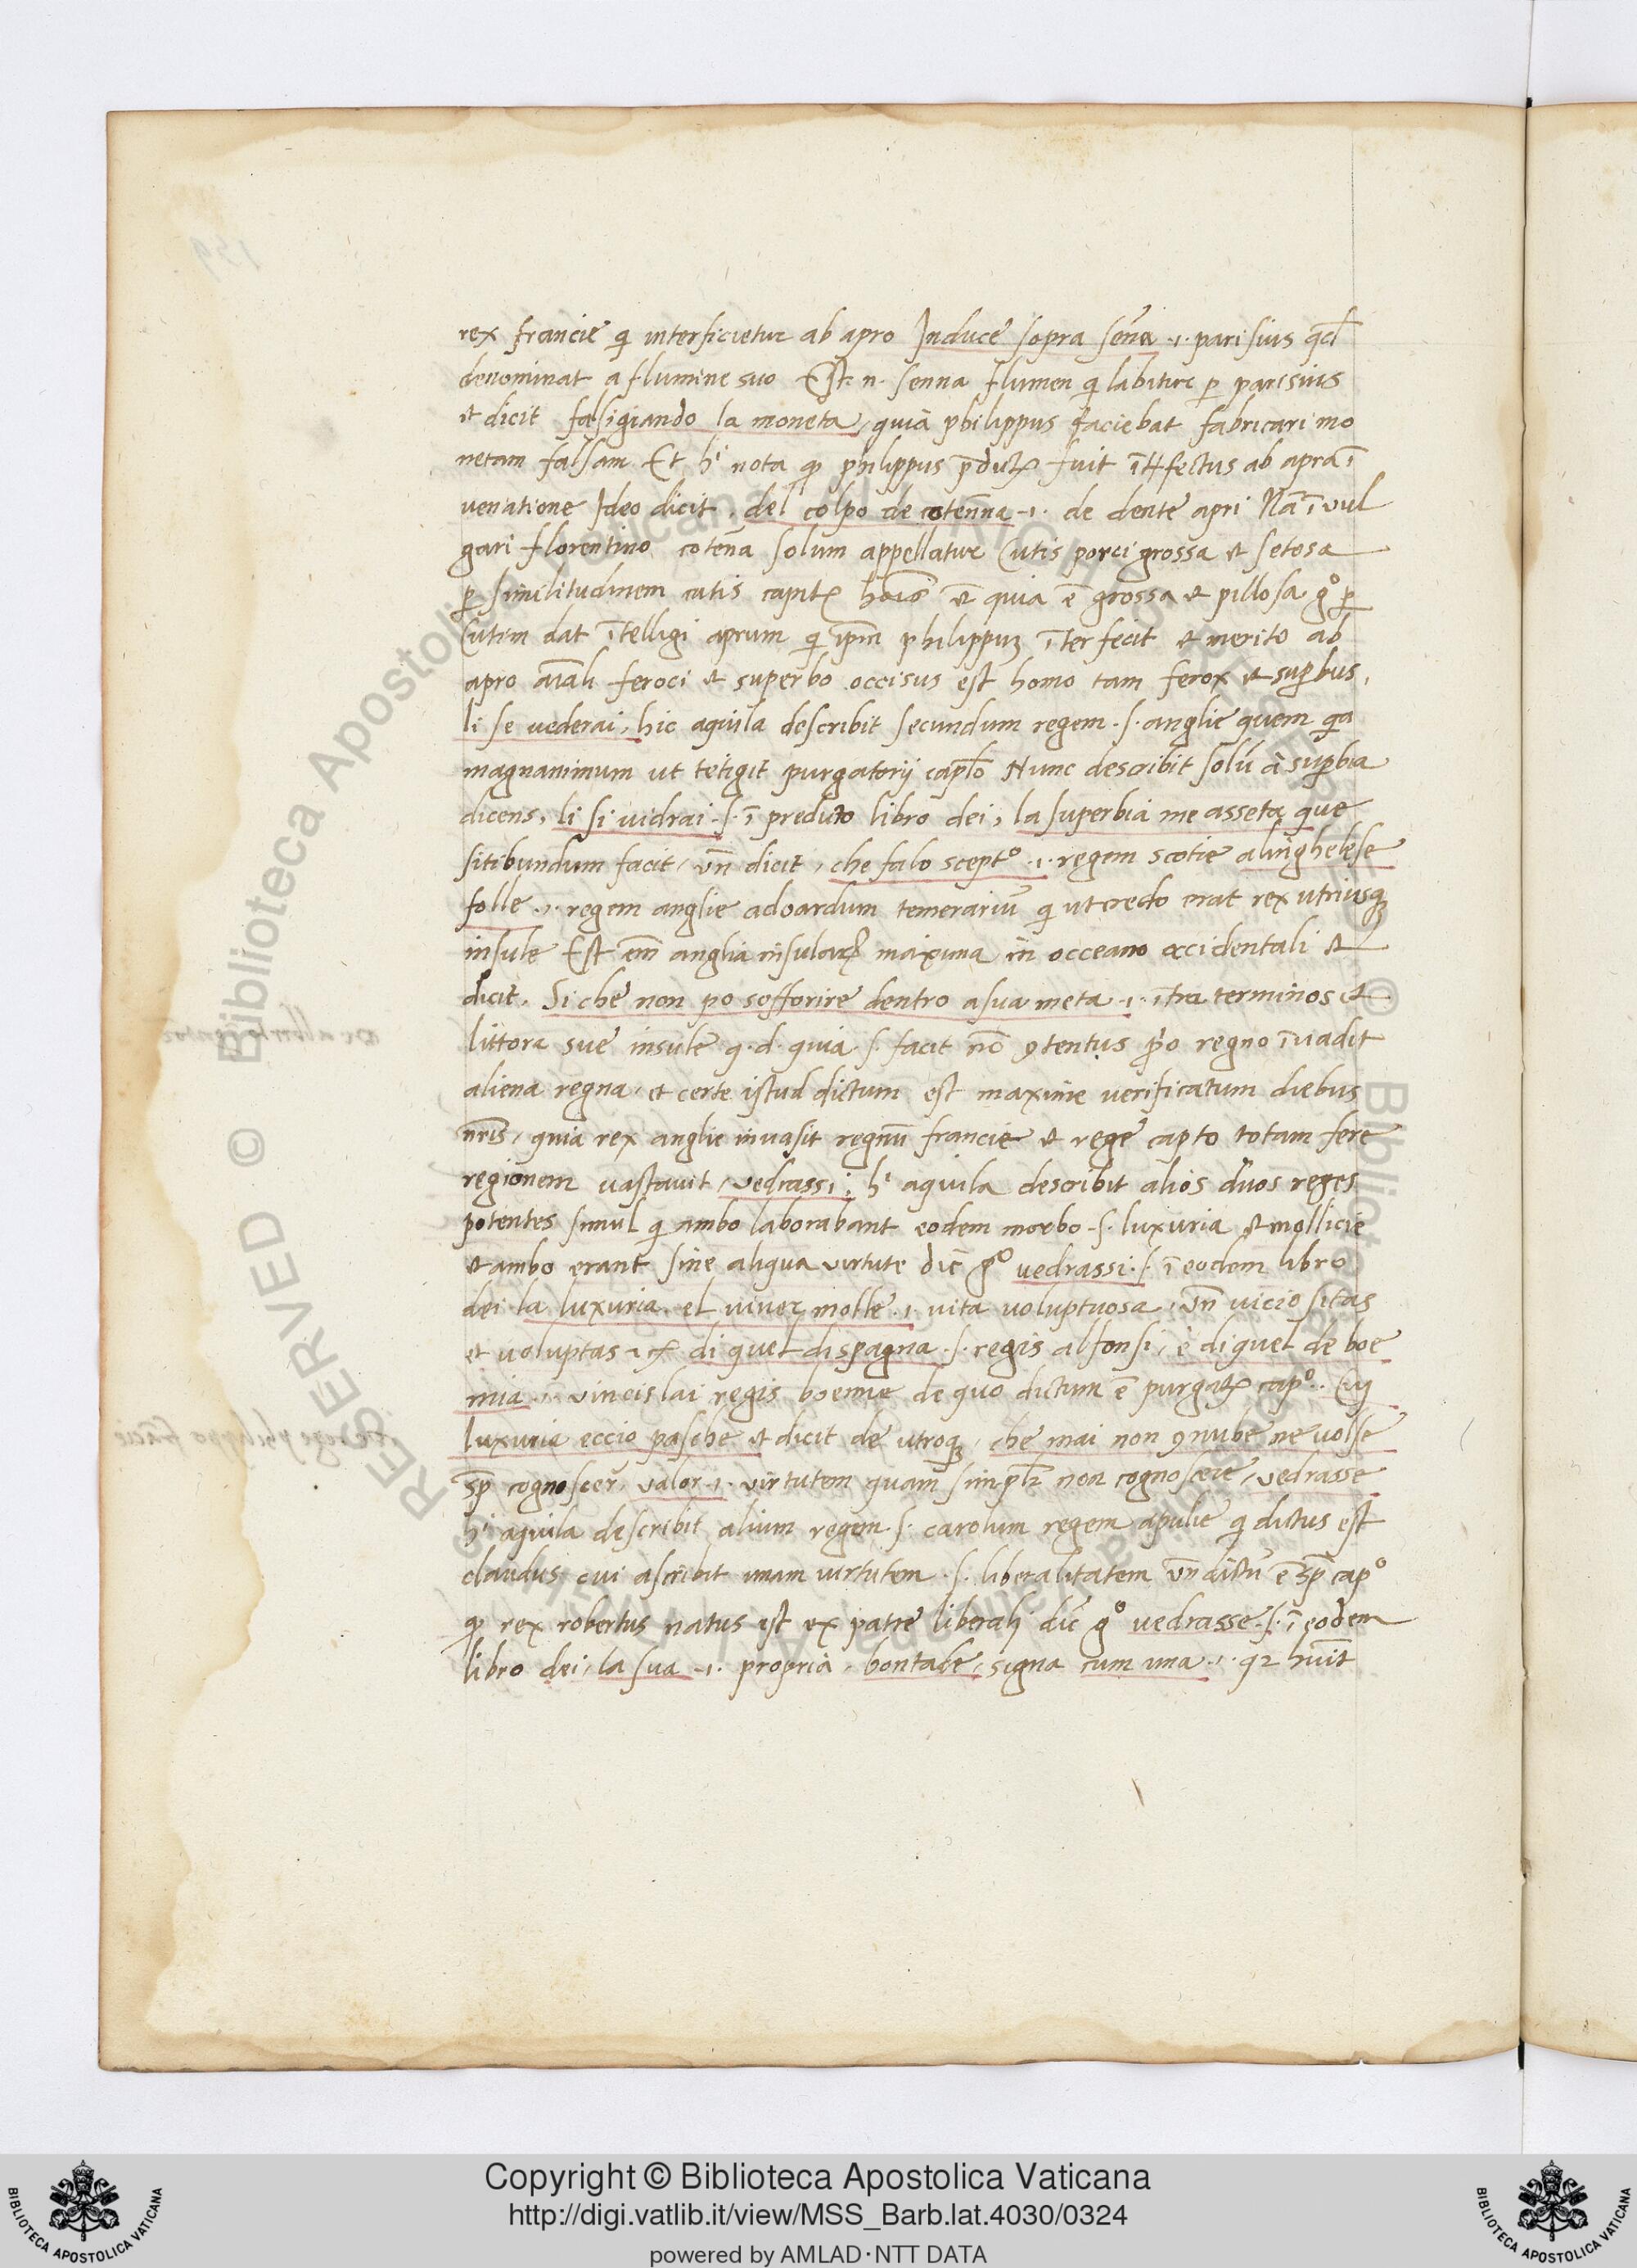 rex francie qi interficietur ab apro Induce sopra sēna .i. parisius qd
denominat a flumine suo Est n. senna flumen qi labitur p parisius
et dicit falsigiando la moneta, quia philippus faciebat fabricari mo
netam falsam Et hi nota qp philippus pductꝰ fuit ītfectus ab apra ī
venatione Ideo dicit, del colpo de cotenna .i. de dente apri Nā ī vul
gari florentino cotēna solum appellatur Cutis porci grossa et setosa
p similitudinem cutis capitꝰ hoīs et quia ē grossa et pillosa gº p
Cutem dat ītelligi aprum qi ipm philippuꝫ īterfecit et merito ab
apro aīali feroci et superbo occisus est homo tam ferox et supbus,
li se vederai, hic aquila describit secundum regem .s. anglie quem qa
magnanimum ut tetigit purgatorij caplo Nunc describit solū a supbia
dicens, li si vidrai .s. ī preducto libro dei, la superbia me asseta que
sitibundum facit, vn dicit, che falo sceptº .i. regem scotie alinghelese
folle .i. regem anglie adoardum temerariū qi ut credo erat rex utriusqꝫ
insule Est em anglia insularꝝ maxima in occeano occidentali et
dicit. Si che non po sofforire dentro a sua meta .i. ītra terminos et
littora sue insule q.d. quia .s. facit nō ꝯtentus pо regno īvadit
aliena regna, et certe istud dictum est maxime verificatum diebus
nris, quia rex anglie invasit regnū francie et rege capto totam fere
regionem vastavit, vedrassi, hi aquila describit alios duos reges
potentes simul qi ambo laborabant eodem morbo .s. luxuria et mollicie
et ambo erant sine aliqua virtute dic̄ gº vedrassi .s. ī eodem libro
dei la luxuria. el viver molle .i. vita voluptuosa, vn vicio sitas
et voluptas di quel di spagna .s. regis alfonsi, e di quel de boe
mia .i. vincislai regis boemie de quo dictum ē purgatꝰ capº. Cuj
luxuria eccio pasche et dicit de utroqꝫ, che mai non ꝯnube ne volse
sp cognoscer, valor .i. virtutem quam simplr non cognoscere, vedrasse
hi aquila describit alium regem .s. carolum regem apulie qi dictus est
claudus, cui ascribit unam virtutem .s. liberalitatem vn dictū ē sp capº
qp rex robertus natus est ex patre liberali dic̄ gº vedrasse .s. ī eodem
libro dei, la sua .i. propria, bontade, signa cum una .i. qꝛ huīt
Copyright © Biblioteca Apostolica Vaticana
http://digi.vatlib.it/view/MSS_Barb.lat.4030/0324
powered by AMLAD·NTT DATA
BIBLIOTECA APOSTOLICA VATICANA
BIBLIOTECA APOSTOLICA VATICANA